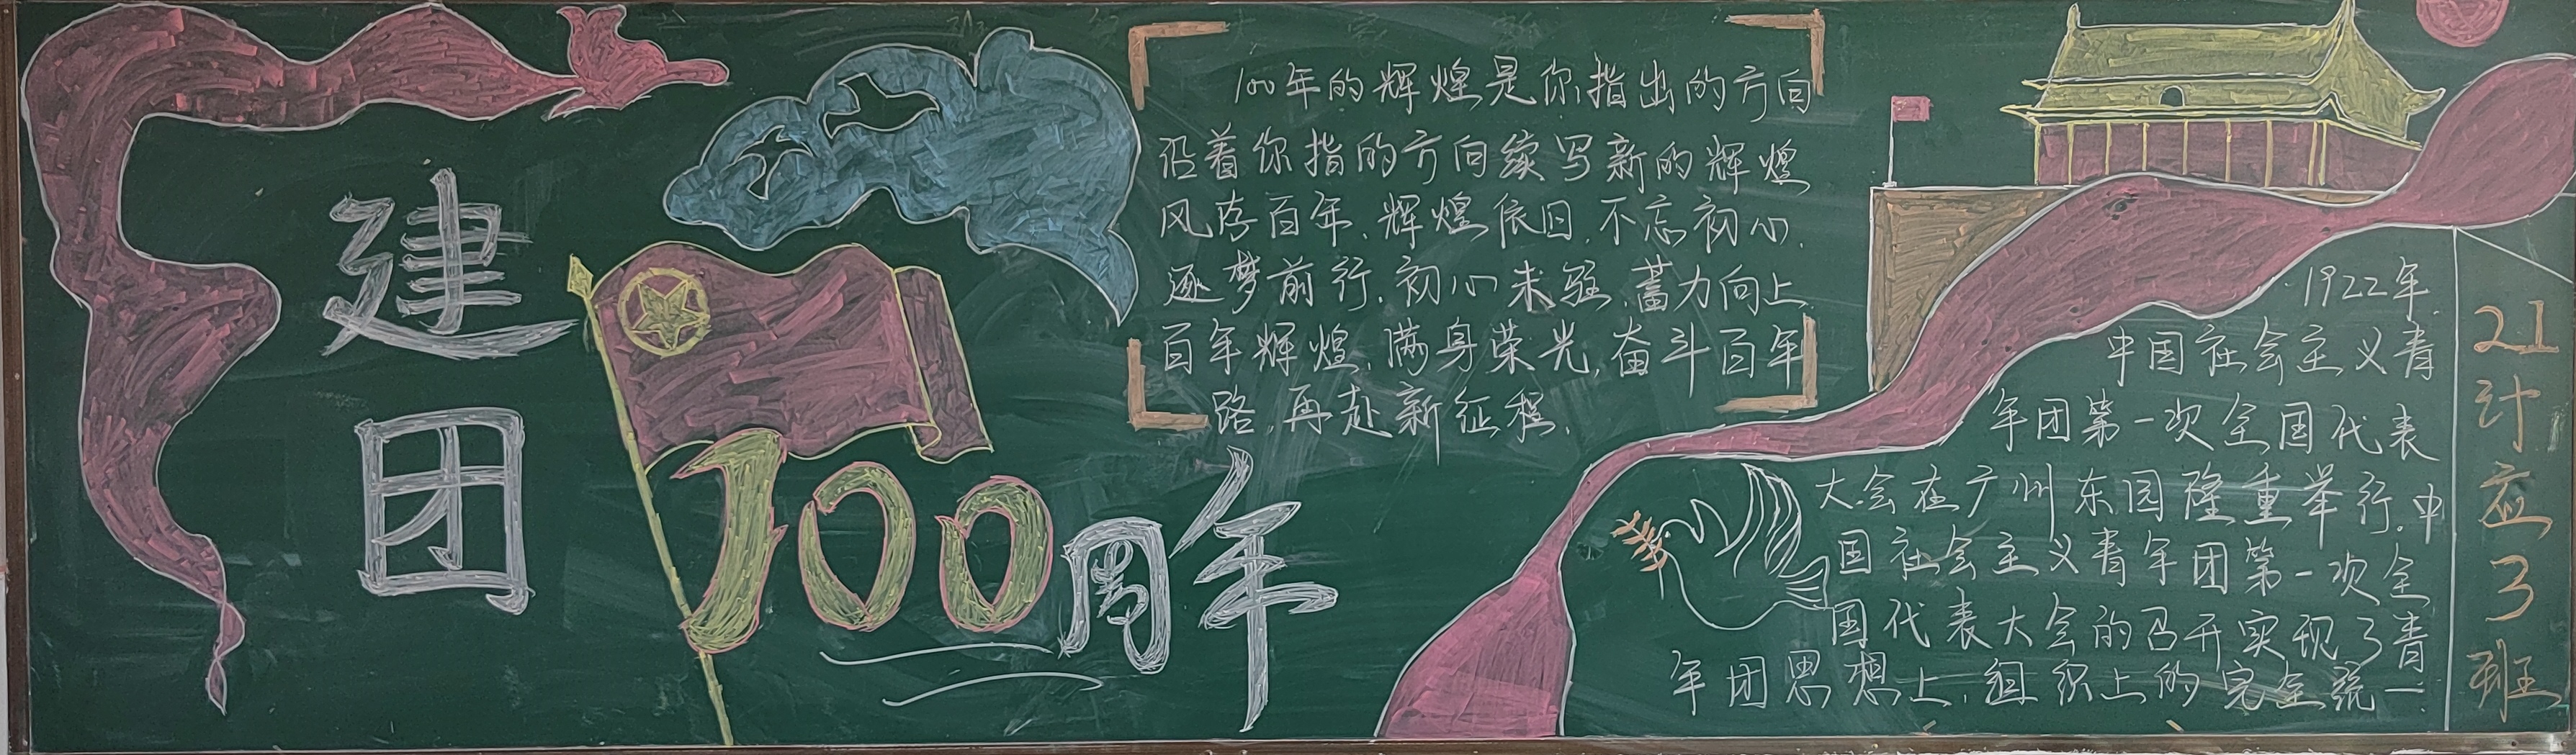 建团
100周年
100年的辉煌是你指出的方向
沿着你指的方向续写新的辉煌
风存百年,辉煌依旧,不忘初心,
逐梦前行,初心未驻,蓄力向上
百年辉煌,满身荣光,奋斗百年
路,再赴新征程,
1922年
中国社会主义青
年团第一次全国代表
大会在广州东园隆重举行,中
国社会主义青年团第一次全
国代表大会的召开实现了青
年团思想上,组织上的完全统一
21计应3班